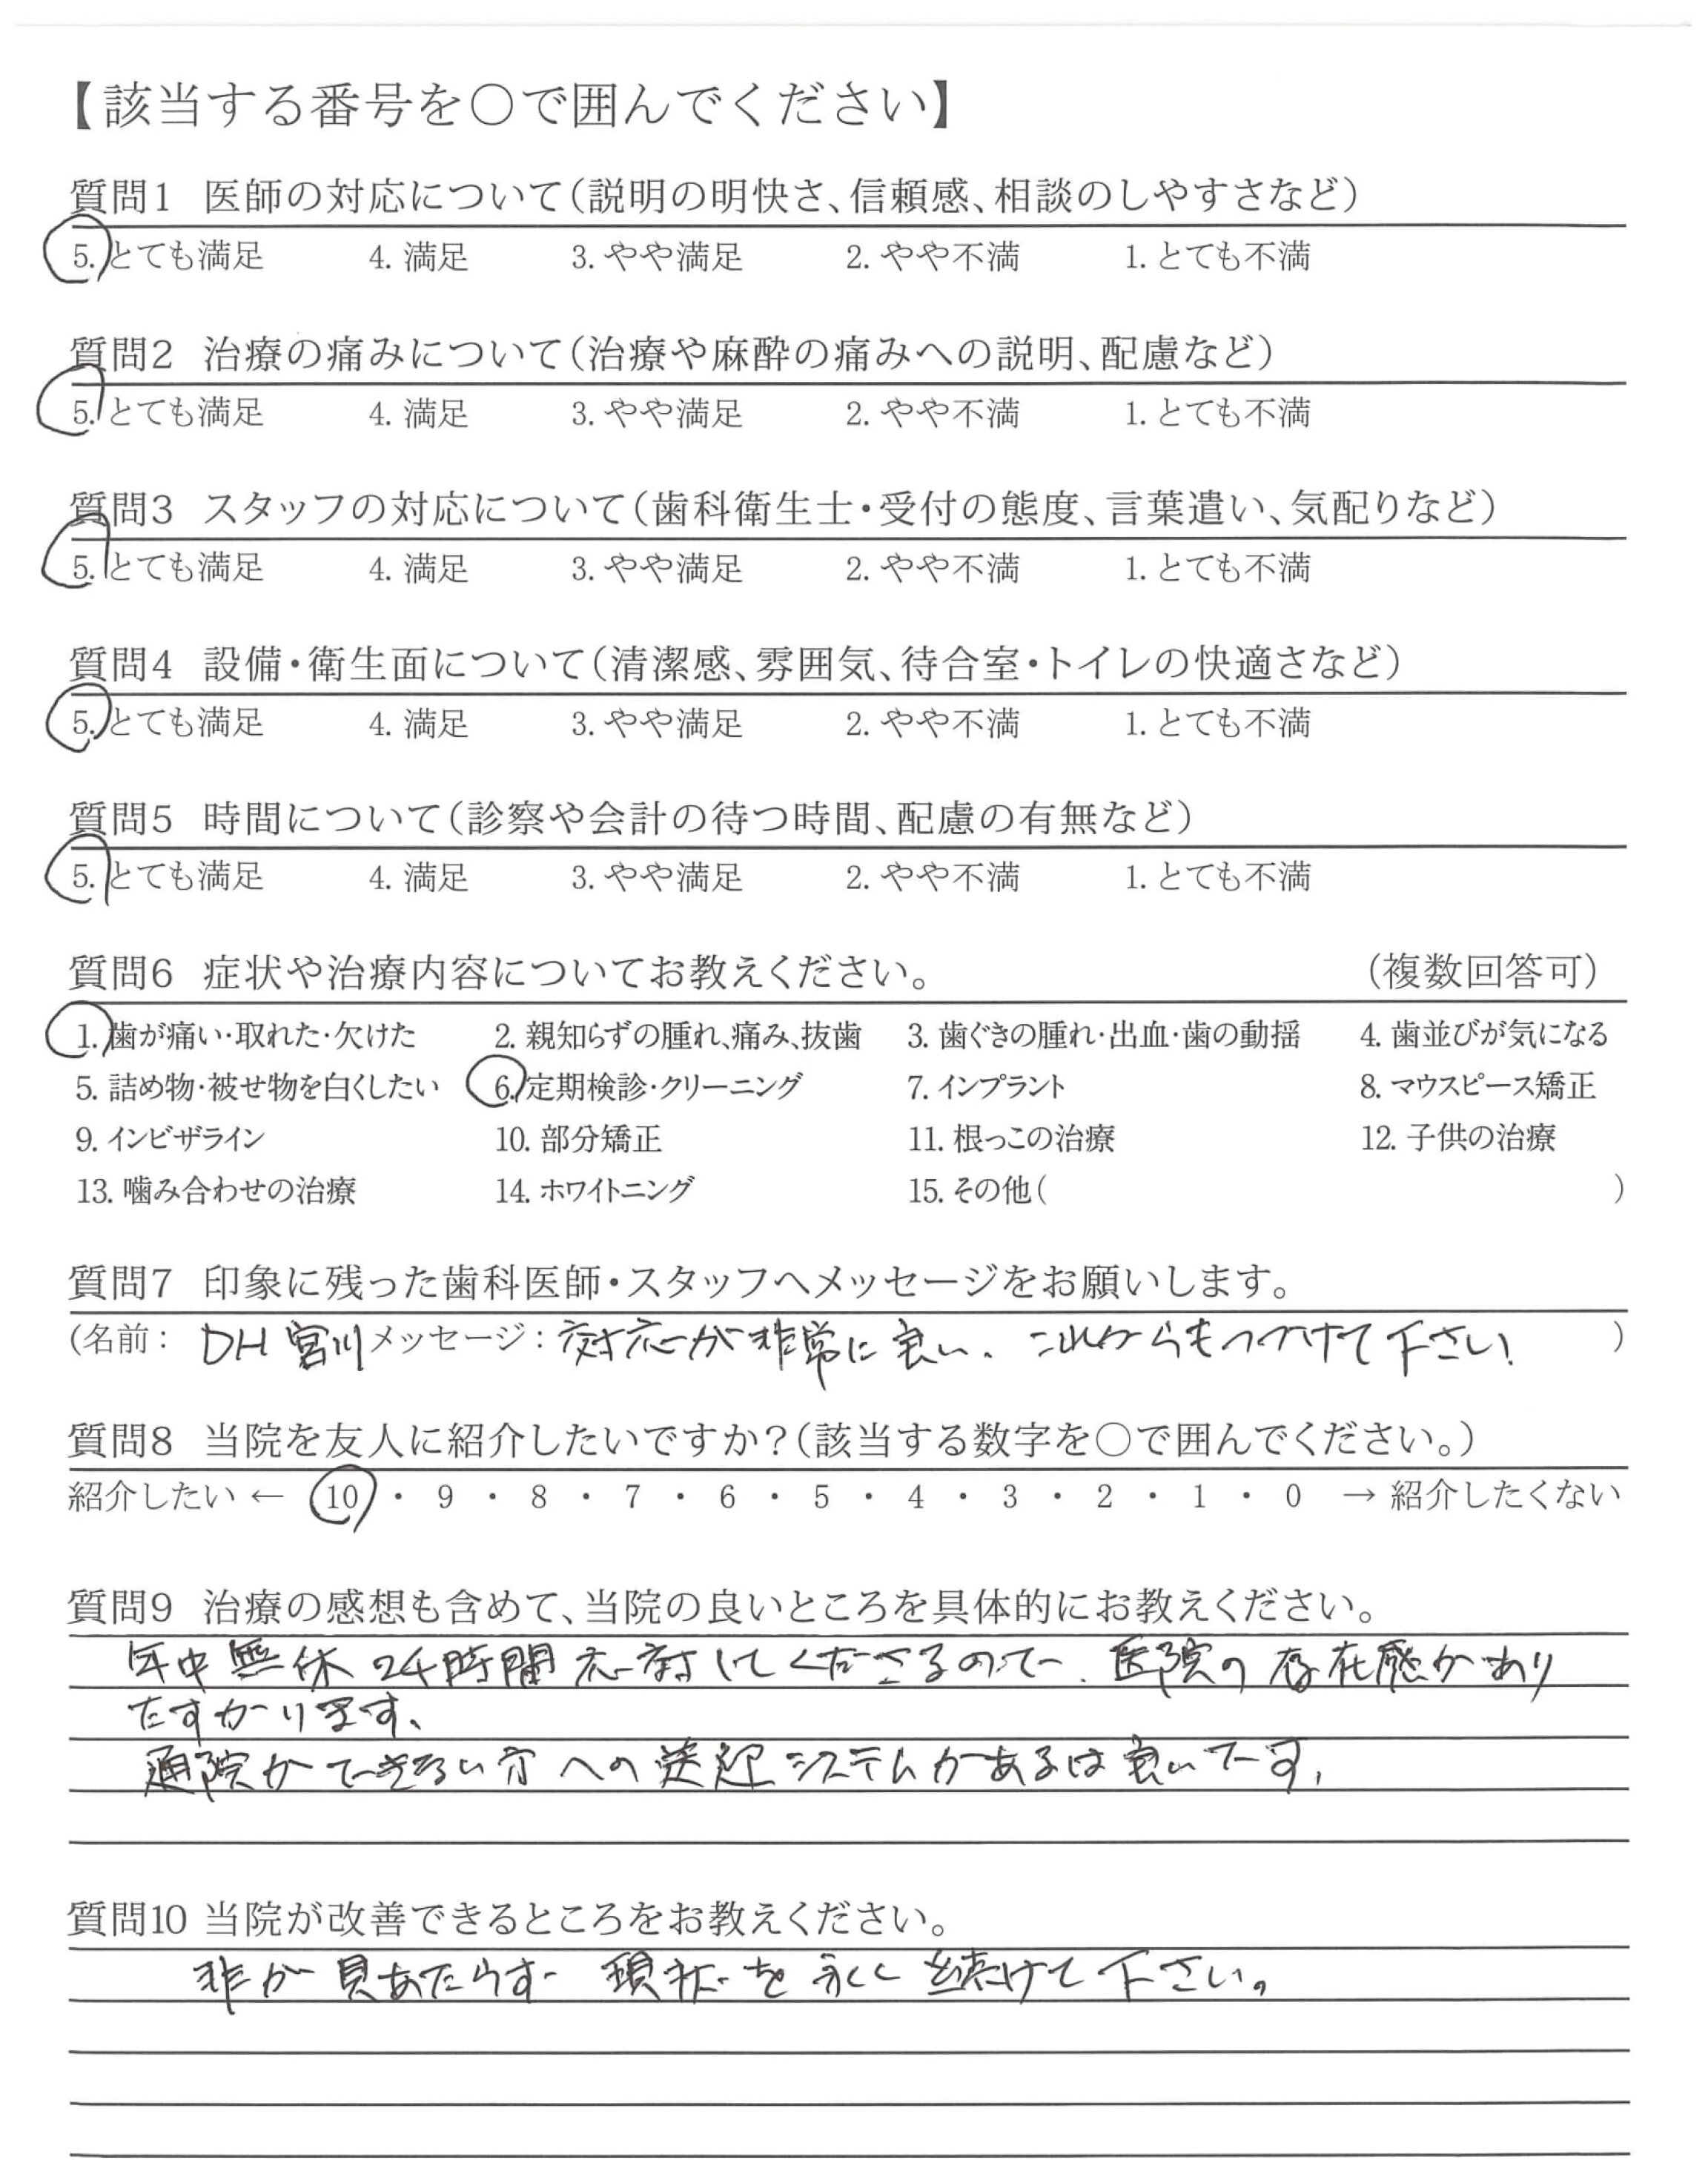 【該当する番号を○で囲んでください】
質問1 医師の対応について(説明の明快さ、信頼感、相談のしやすさなど)
5. とても満足 4. 満足 3. やや満足 2. やや不満 1. とても不満
質問2 治療の痛みについて(治療や麻酔の痛みへの説明、配慮など)
5. とても満足 4. 満足 3. やや満足 2. やや不満 1. とても不満
質問3 スタッフの対応について(歯科衛生士・受付の態度、言葉遣い、気配りなど)
5. とても満足 4. 満足 3. やや満足 2. やや不満 1. とても不満
質問4 設備・衛生面について(清潔感、雰囲気、待合室・トイレの快適さなど)
5. とても満足 4. 満足 3. やや満足 2. やや不満 1. とても不満
質問5 時間について(診察や会計の待つ時間、配慮の有無など)
5. とても満足 4. 満足 3. やや満足 2. やや不満 1. とても不満
質問6 症状や治療内容についてお教えください。 (複数回答可)
1. 歯が痛い・取れた・欠けた 2. 親知らずの腫れ、痛み、抜歯 3. 歯ぐきの腫れ・出血・歯の動揺 4. 歯並びが気になる
5. 詰め物・被せ物を白くしたい 6. 定期検診・クリーニング 7. インプラント 8. マウスピース矯正
9. インビザライン 10. 部分矯正 11. 根っこの治療 12. 子供の治療
13. 噛み合わせの治療 14. ホワイトニング 15. その他( )
質問7 印象に残った歯科医師・スタッフへメッセージをお願いします。
(名前: DH 宮川 メッセージ: 対応が非常に良い、これからもつづけて下さい! )
質問8 当院を友人に紹介したいですか?(該当する数字を○で囲んでください。)
紹介したい ← 10 ・ 9 ・ 8 ・ 7 ・ 6 ・ 5 ・ 4 ・ 3 ・ 2 ・ 1 ・ 0 → 紹介したくない
質問9 治療の感想も含めて、当院の良いところを具体的にお教えください。
年中無休 24時間 応対してくださるので、医院の存在感があり
たすかります、
通院ができない方への送迎システムがあるは良いです、
質問10 当院が改善できるところをお教えください。
非が見あたらず 現状を永く続けて下さい。